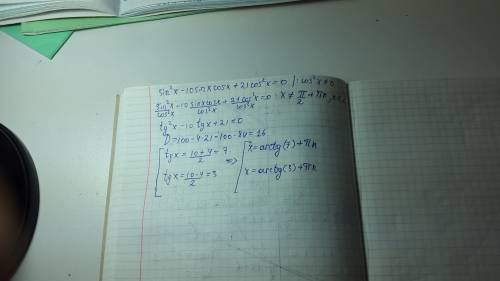 sin²x - 10sinxcosx + 21cos²x = 0 | : cos²x ≠ 0
sin²x/cos²x - 10 sinxcosx/cos²x + 21cos²x/cos²x = 0 x ≠ π/2 + πn,
tg²x - 10 tgx + 21 = 0
D = 100 - 4·21 - 100 - 84 = 16
[ tgx = (10+4)/2 = 7 => [ x = arctg(7) + πn
tgx = (10-4)/2 = 3 x = arctg(3) + πn